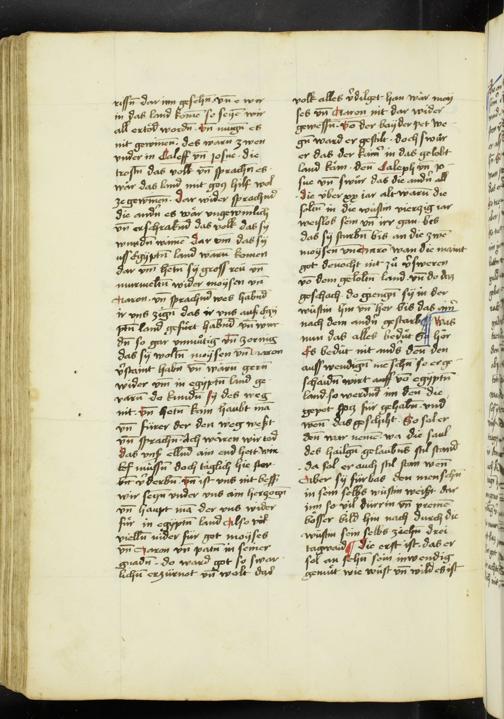 rissen dar inn gesehn vn̄ e wir
in das land kome so seÿe wir
all ertöd wordn̄. Vn̄ mugn es
nit gewinen. des warn zwen
vnder in Caleff vn̄ Josue. die
trostn das volk vn̄ sprachn es
wär das land mit gog hilf wol
ze gewinen. dar wider sprachnd
die andn es wär vngewinlich
vn̄ erschraknd das volk das sÿ
wurdn dar vm das sÿ
uss Egiptn land warn komen
dar vm hetn sÿ gross reu vn̄
murmeltn wider moÿsen vn̄
Aaron. vn̄ sprachnd wes habnd
ir vns zign das ir vns auss egi
ptn land gefürt habnd vn̄ wur
dn so gar vnmütig vn̄ zornig
das sÿ woltn moÿsen vn̄ Aaron
v̄staint habn vn̄ warn gern
wider vm in egiptn land ge
varn do kundn sÿ des weg
nit. Vn̄ hetn kain haubt ma
vn̄ fürer der den weg west
vn̄ sprachn ach wären wir tod
das vns ellend ain end hett won
wir müssn doch täglich hie ster
bn v̄derbn. Vn̄ ist vns nit besser
wir sezn vnder vns ain herzogn
vn̄ haupt ma der vns wider
für in egiptn land. Also vil
vielln nider für got moÿses
vn̄ Aaron vn̄ patn in seiner
gnadn. do ward got so swär
lichn erzürnot vn̄ wolt das
volk alles v̄dilget han wär moÿ
ses vn̄ Aaron nit dar wider
gewessn. Von der baÿder pet we
gn ward er gestilt. doch swůr
er das der kain in das gelobt
land käm. denn Caleph vn̄ Jo
sue vn̄ swůr das die andn all
die über xx iar alt warn die
soltn in der wüstin vierzig iar
weislos sein vn̄ irr gan bis
das sÿ sturbn bis an die zwe
moÿsen vn̄ Aaro wan die maint
got dennocht nit zů v̄sweren
vo dem gelobtn land. vn̄ do das
geschach. do giengn sÿ in der
wüstin hin vn̄ her bis das ain
nach dem andn gestarb. Was
nun das alles bedut hör
Es bedut nit ands den den
auss wendign menschn so er ge
schaidn wirt auss vo egiptn
land so werdnd im den die
gepot gotz für gehabn vnd
won das geschiht. So sol er
den war neme wa die saul
des hailgn gelaubns stil stand
da sol er auch stil stan wen
Aber sÿ fürbas den menschn
in sein selbs wüstin weist dar
inn so vil durrin vn̄
bösser bild hin nach durch die
wüstin sein selbs ziehn drei
tagwaid. die erst ist das er
sol an sehn sein inwendig
gemüt wie wüst vn̄ wild es ist